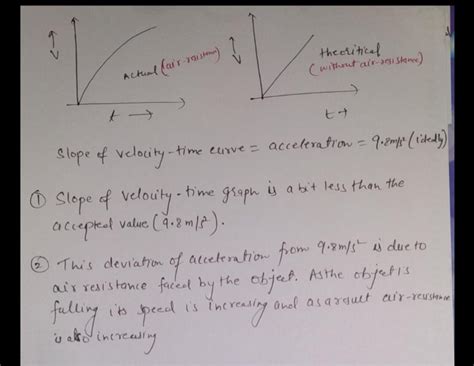 V
Actual (air-resistance)
t →
V
theoritical
(without air-resistance)
t →
Slope of velocity-time curve = acceleration = 9.8m/s² (ideally)
① Slope of velocity-time graph is a bit less than the
accepted value (9.8m/s²).
② This deviation of acceleration from 9.8m/s² is due to
air resistance faced by the object. As the object is
falling its speed is increasing and as a result air-resistance
is also increasing